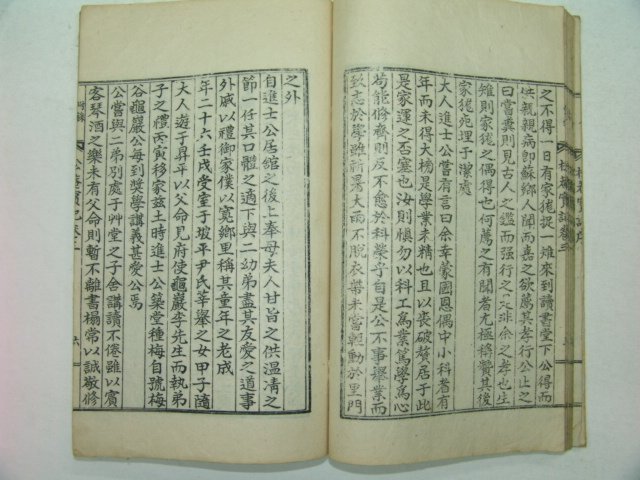 之不得一日有家後捉一雉來到讀書堂下公得而
供親親病卽蘇鄉人聞而嘉之欲薦其孝行公止之
曰嘗糞則見古人之鑑而强行之之非余之孝也生
雉則家後之偶得也何薦之有聞者尤極稱贊其後
家後死埋于潔處
大人進士公嘗有言曰余幸蒙國恩偶中小科耆有
年而未得大榜是學業未精也且以喪破贅居于此
是家運之否塞也汝則愼勿以科工爲業篤學爲心
苟能修齋則反不愈於科榮乎自是公不事擧業而
致志於學雖祈暑大雨不脫衣帶未嘗輕動於里門
之外
自進士公居館之後上奉母夫人甘旨之供溫凊之
節一任其口體之適下與二幼弟盡其友愛之道事
外戚以禮御家僕以寬鄕里稱其童年之老成
年二十六壬戌受室于坡平尹氏莘擧之女甲子隨
大人遊于昇平以父命見府使龜巖李先生而執弟
子之禮丙寅移家玆土時進士公築堂種梅自號梅
谷龜巖公每到奬學講義甚愛公焉
公嘗與二弟別處子艸堂之子舍講讀不倦雖以賓
客琴酒之樂未有父命則暫不離書榻常以誠敬修